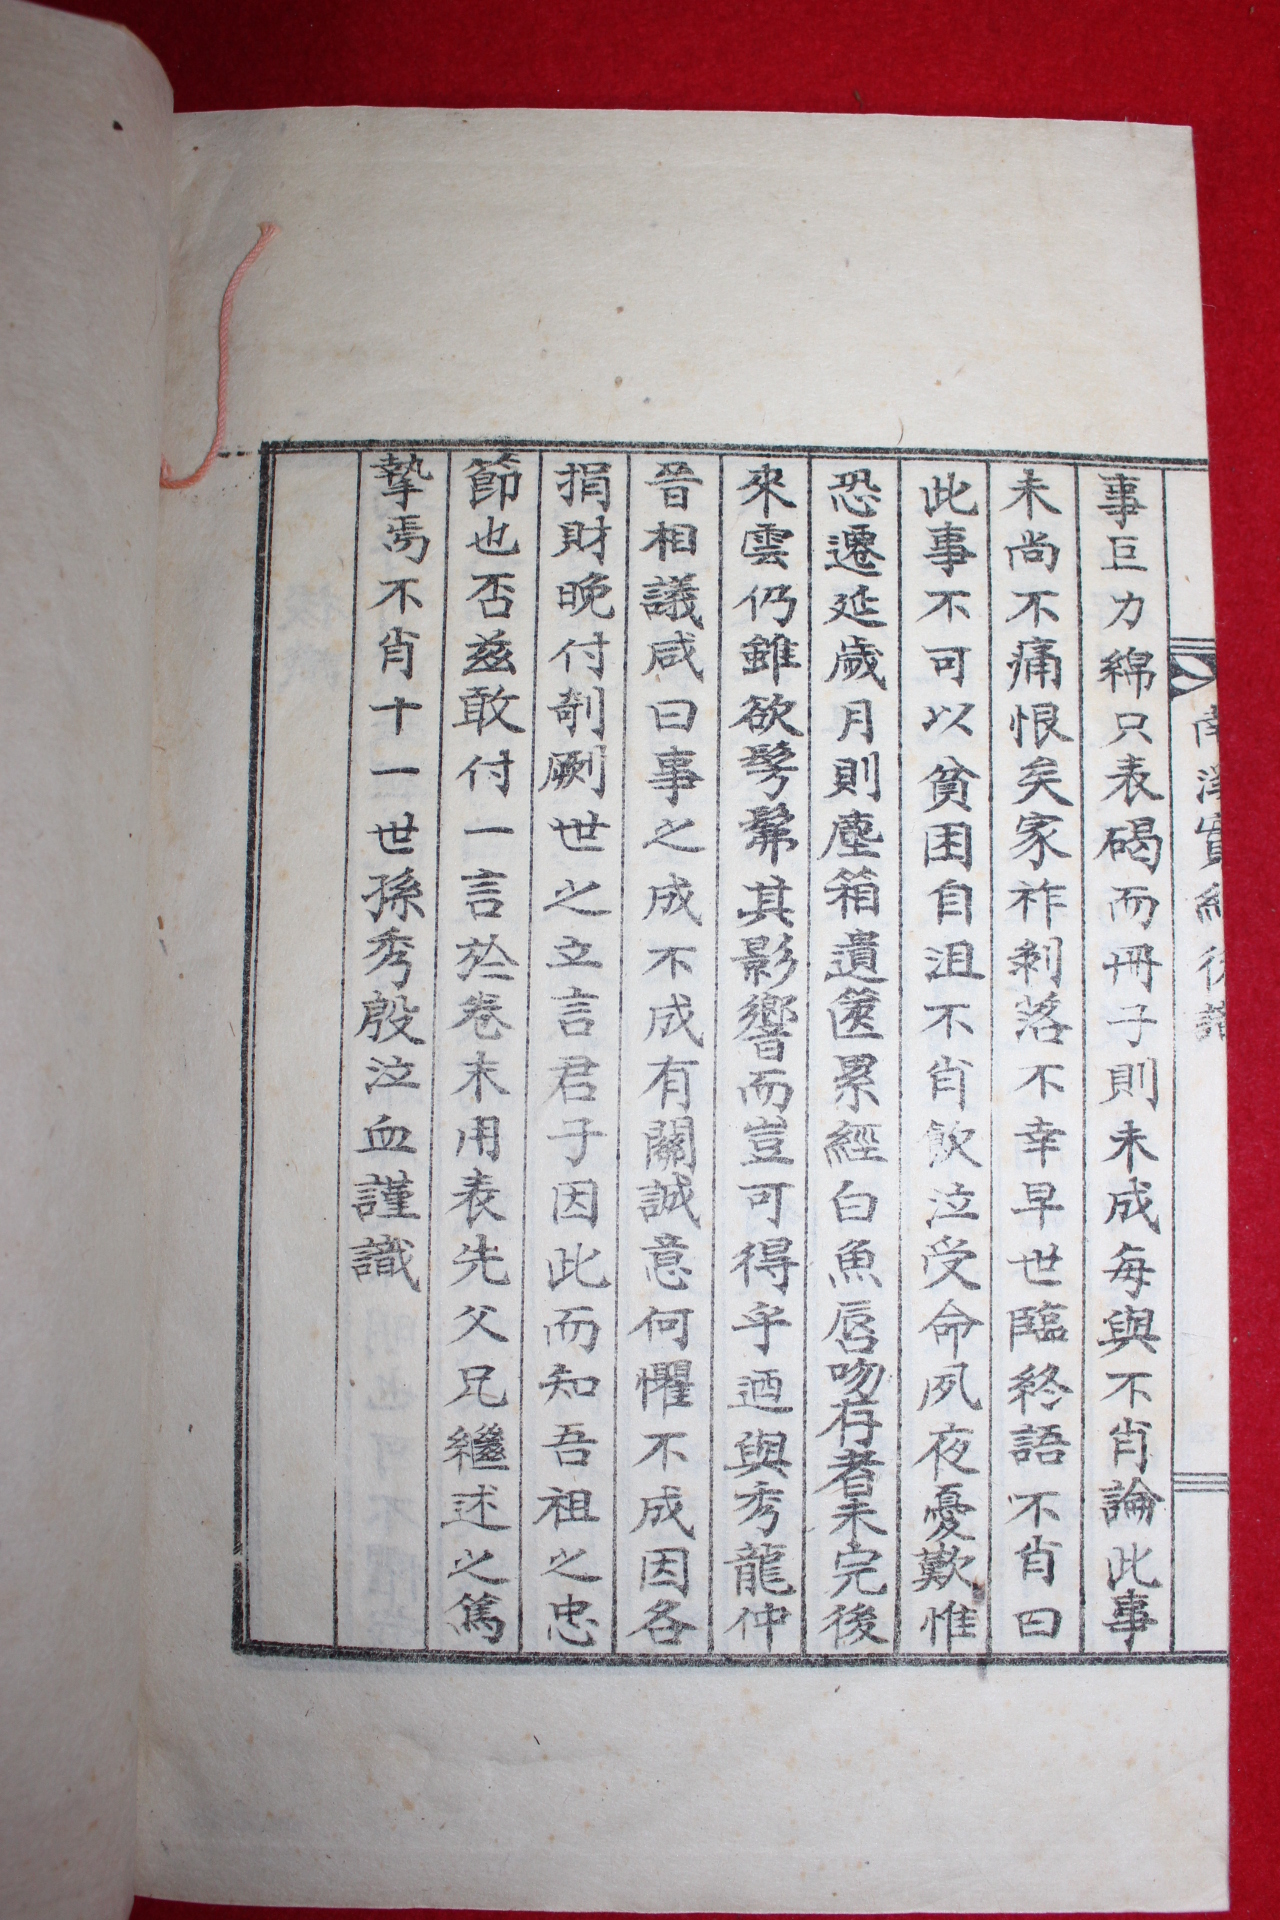 南溪實紀後識
事巨力綿只表碣而冊子則未成每與不肖論此事
未尚不痛恨矣家祚剝落不幸早世臨終語不肖曰
此事不可以貧困自沮不肖飮泣受命夙夜憂歎惟
恐遷延歲月則塵箱遺篋累經白魚唇吻存者未完後
來雲仍雖欲髣髴其影響而豈可得乎迺與秀龍仲
晉相議咸曰事之成不成有關誠意何懼不成因各
捐財晩付剞劂世之立言君子因此而知吾祖之忠
節也否茲敢付一言於卷末用表先父兄繼述之篤
摯焉不肖十一世孫秀殷泣血謹識